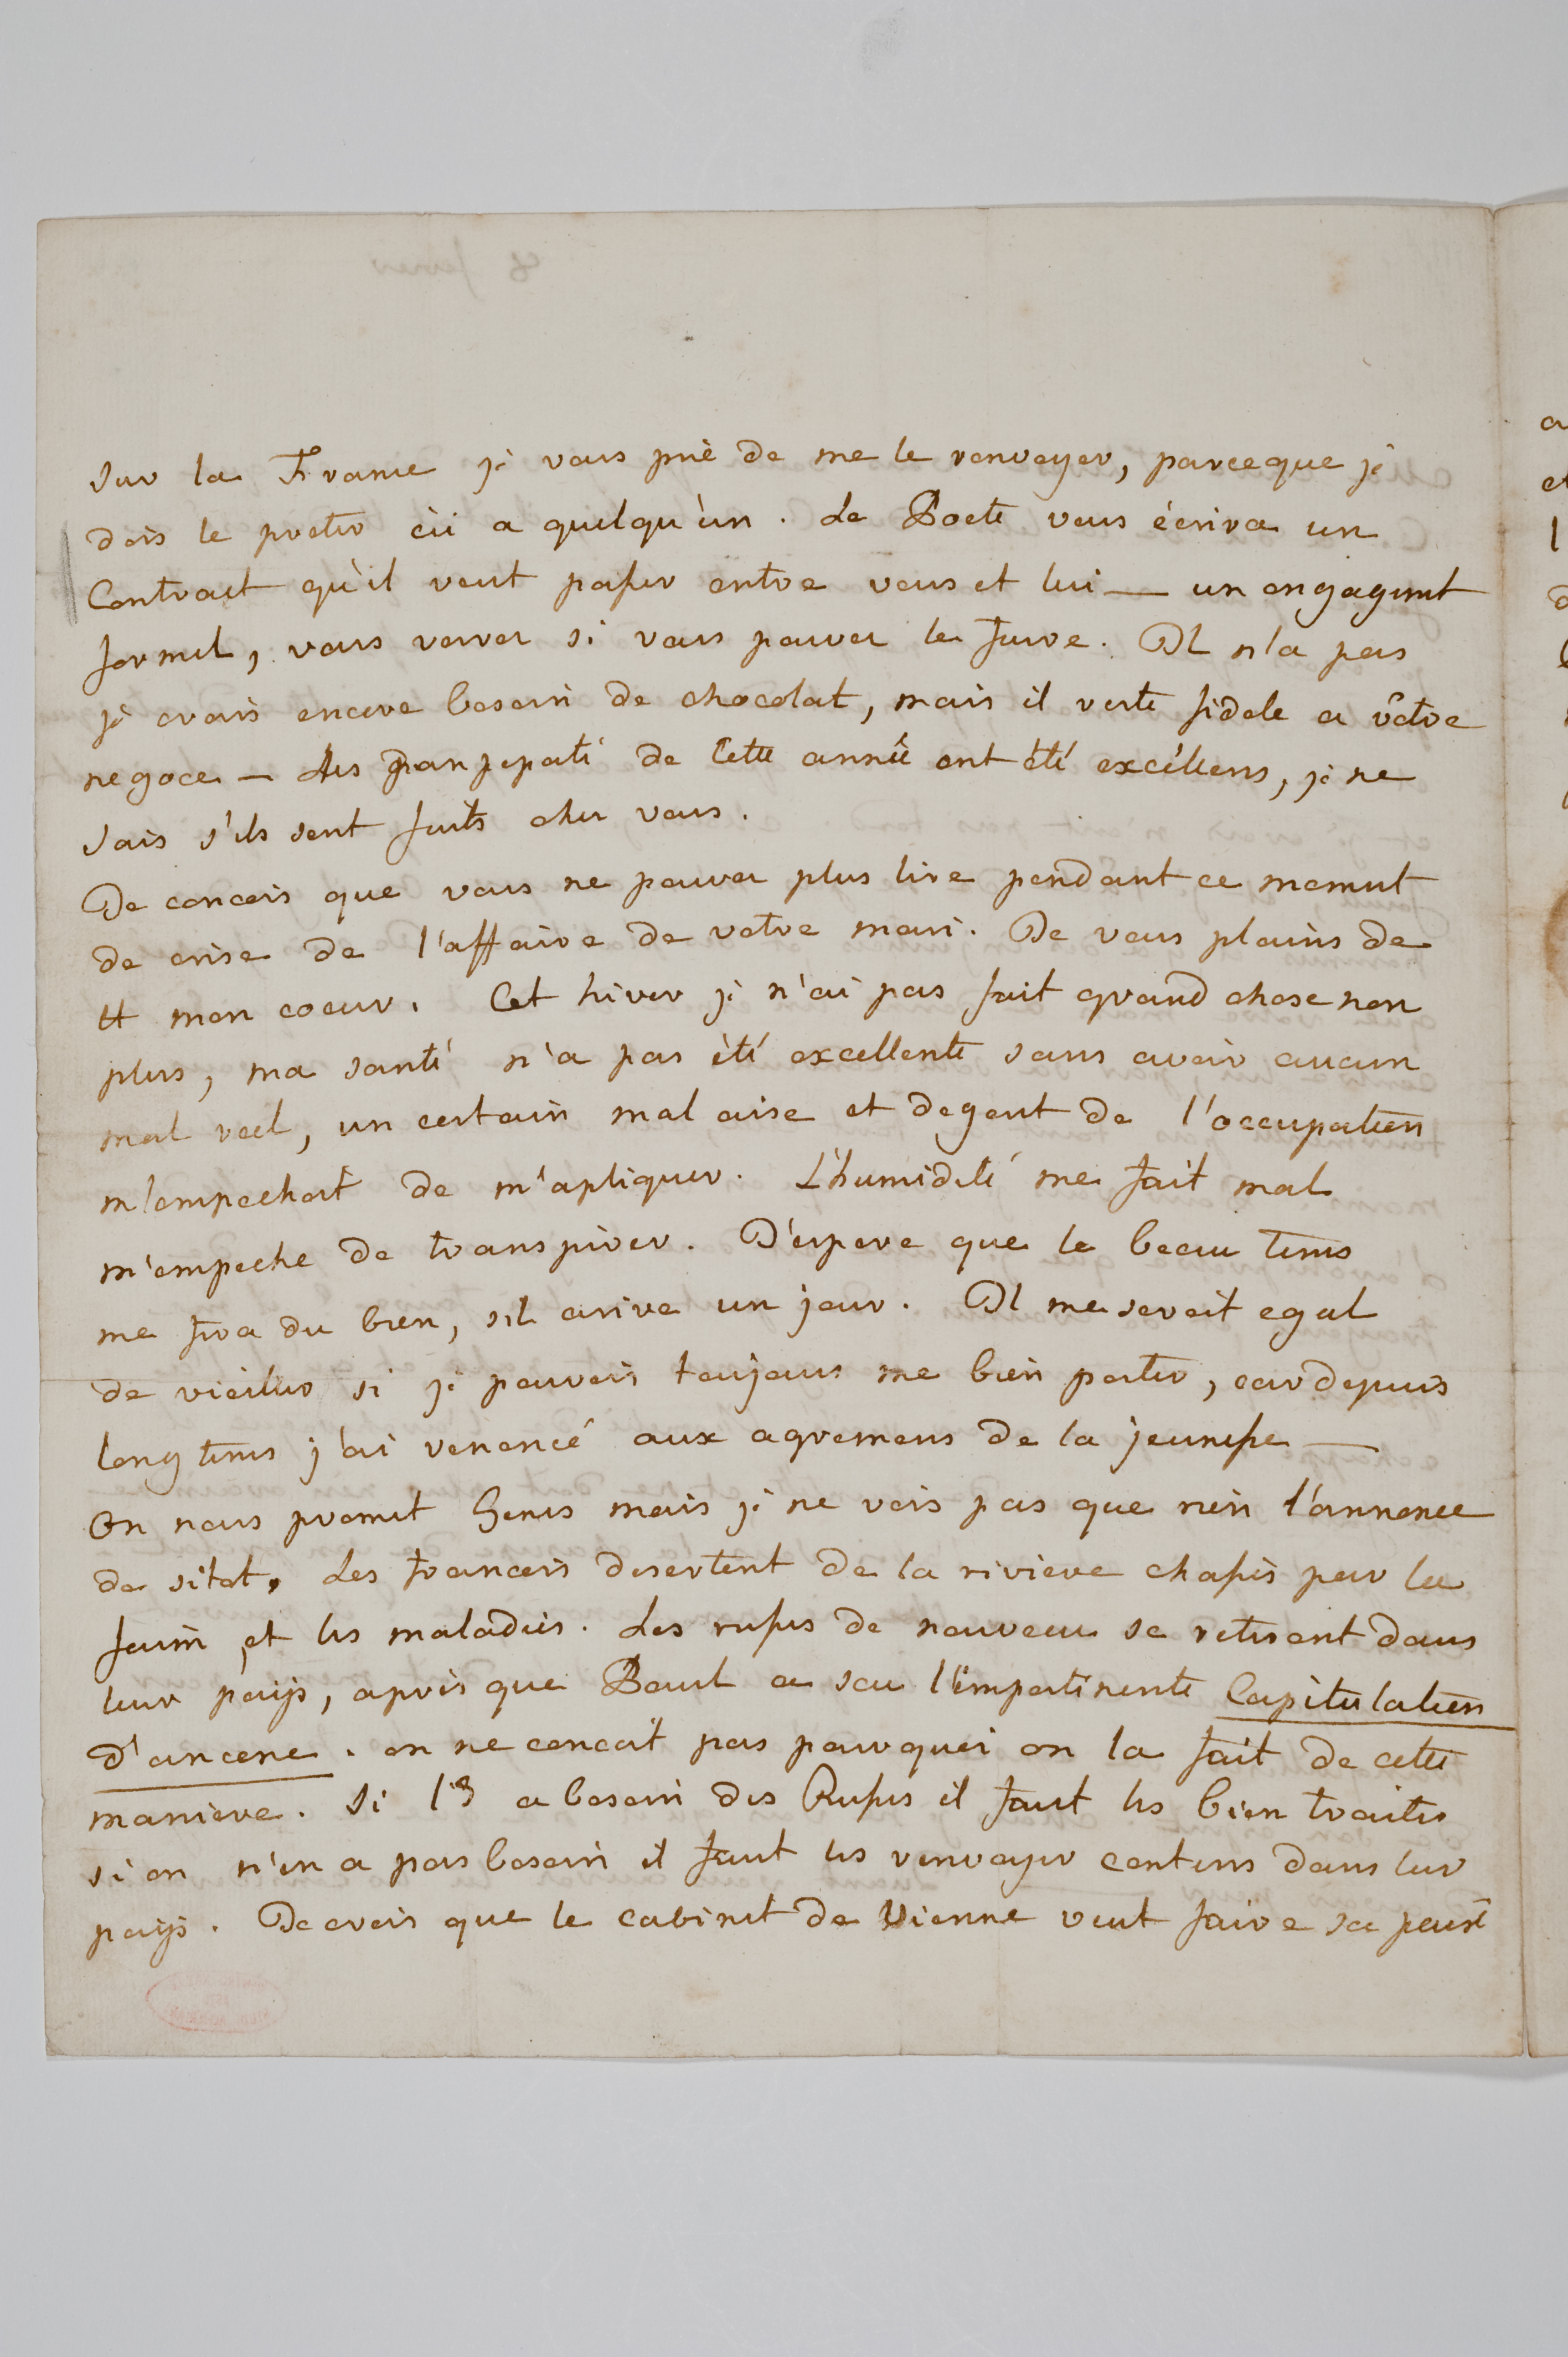 sur la France je vous prie de me le renvoyer, parceque je
dois le preter ici a quelqu'un. Le Poete vous écrira un
Contract qu'il veut passer entre vous et lui — un engagement
formel, vous verrez si vous pouvez le faire. Il n'a pas
je crois encore besoin de chocolat, mais il reste fidele a vôtre
negoce — Les panpepati de Cette année ont été excellens, je ne
sais s'ils sont faits chez vous.
Je concois que vous ne pouvez plus lire pendant ce moment
de crise de l'affaire de votre mari. Je vous plains de
tt mon coeur. Cet hiver je n'ai pas fait grand chose non
plus, ma santé n'a pas été excellente sans avoir aucun
mal reel, un certain mal aise et degout de l'occupation
m'empechoit de m'apliquer. L'humidité me fait mal
m'empeche de transpirer. J'espere que le beau tems
me fra du bien, s'il arive un jour. Il me seroit egal
de vieilir si je pouvois toujours me bien porter, car depuis
long tems j'ai renoncé aux agremens de la jeunesse —
On nous promet Genes mais je ne vois pas que rien l'annonce
de sitot. Les francois desertent de la riviere chassés par la
faim et les maladies. Les russes de nouveau se retirent dans
leur païs, après que Paul a seu l'impertinente Capitulation
d'ancone. on ne concoit pas pourquoi on la fait de cette
maniere. Si l' a besoin des Russes il faut les bien traiter
si on n'en a pas besoin il faut les renvoyer contens dans leur
païs. Je crois que le cabinet de Vienne veut faire sa